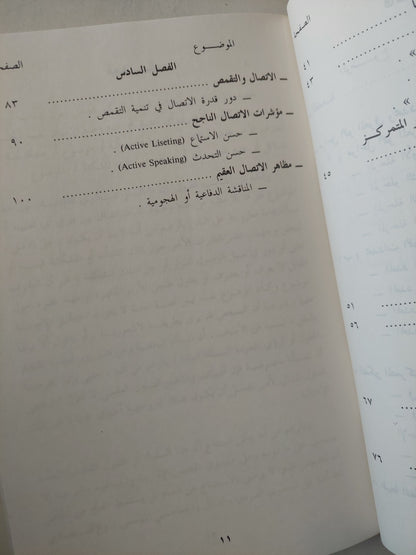 الموضـــوع
الصفحـ
الفصل السادس
ــ الاتصال والتقمص ........................ ٨٣
ــ دور قدرة الاتصال في تنمية التقمص .
ــ مؤشرات الاتصال الناجح ........................ ٩٠
ــ حسن الاستماع (Active Liseting) .
ــ حسن التحدث (Active Speaking) .
ــ مظاهر الاتصال العقيم ........................ ١٠٠
ــ المناقشة الدفاعية أو الهجومية .
١١
الصفحـ
٤١
٤٣
المتمركز
٤٥
٥١
٥٦
٦٧
٧٦